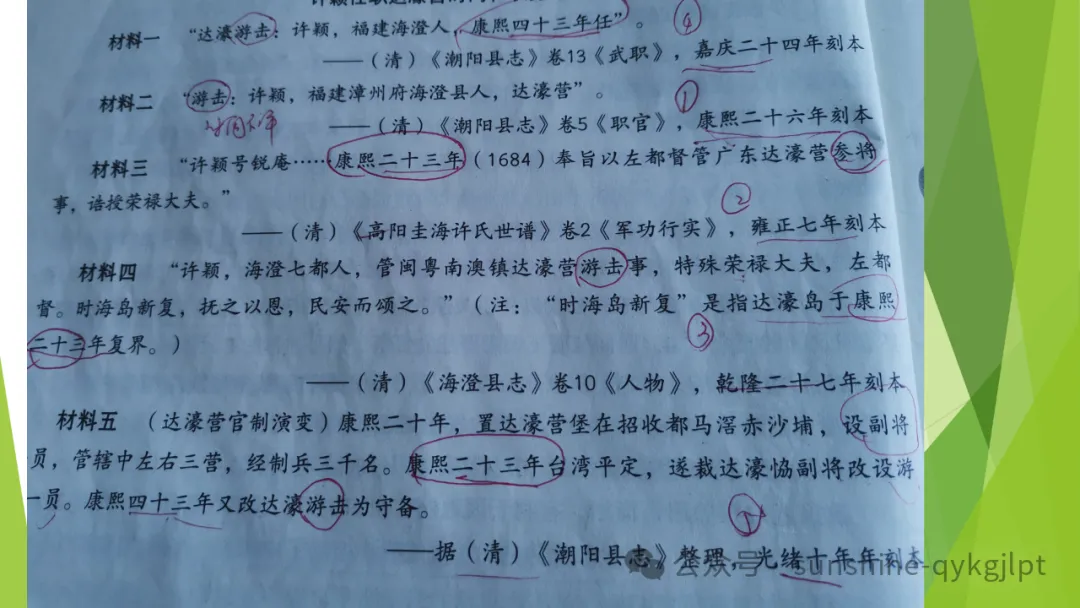 材料一 “达濠游击：许颖，福建海澄人，康熙四十三年任”。 ④
——（清）《潮阳县志》卷13《武职》，嘉庆二十四年刻本
材料二 “游击：许颖，福建漳州府海澄县人，达濠营”。 ①
——（清）《潮阳县志》卷5《职官》，康熙二十六年刻本
材料三 “许颖号锐庵……康熙二十三年（1684）奉旨以左都督管广东达濠营参将
事，诰授荣禄大夫。”
②
——（清）《高阳圭海许氏世谱》卷2《军功行实》，雍正七年刻本
材料四 “许颖，海澄七都人，管闽粤南澳镇达濠营游击事，特殊荣禄大夫，左都
督。时海岛新复，抚之以恩，民安而颂之。”（注：“时海岛新复”是指达濠岛于康熙
二十三年复界。）
③
——（清）《海澄县志》卷10《人物》，乾隆二十七年刻本
材料五 （达濠营官制演变）康熙二十年，置达濠营堡在招收都马滘赤沙埔，设副将
员，管辖中左右三营，经制兵三千名。康熙二十三年台湾平定，遂裁达濠恊副将改设游
一员。康熙四十三年又改达濠游击为守备。
——据（清）《潮阳县志》整理，光绪十年年刻本
公众号·sunshine-qykgjlpt